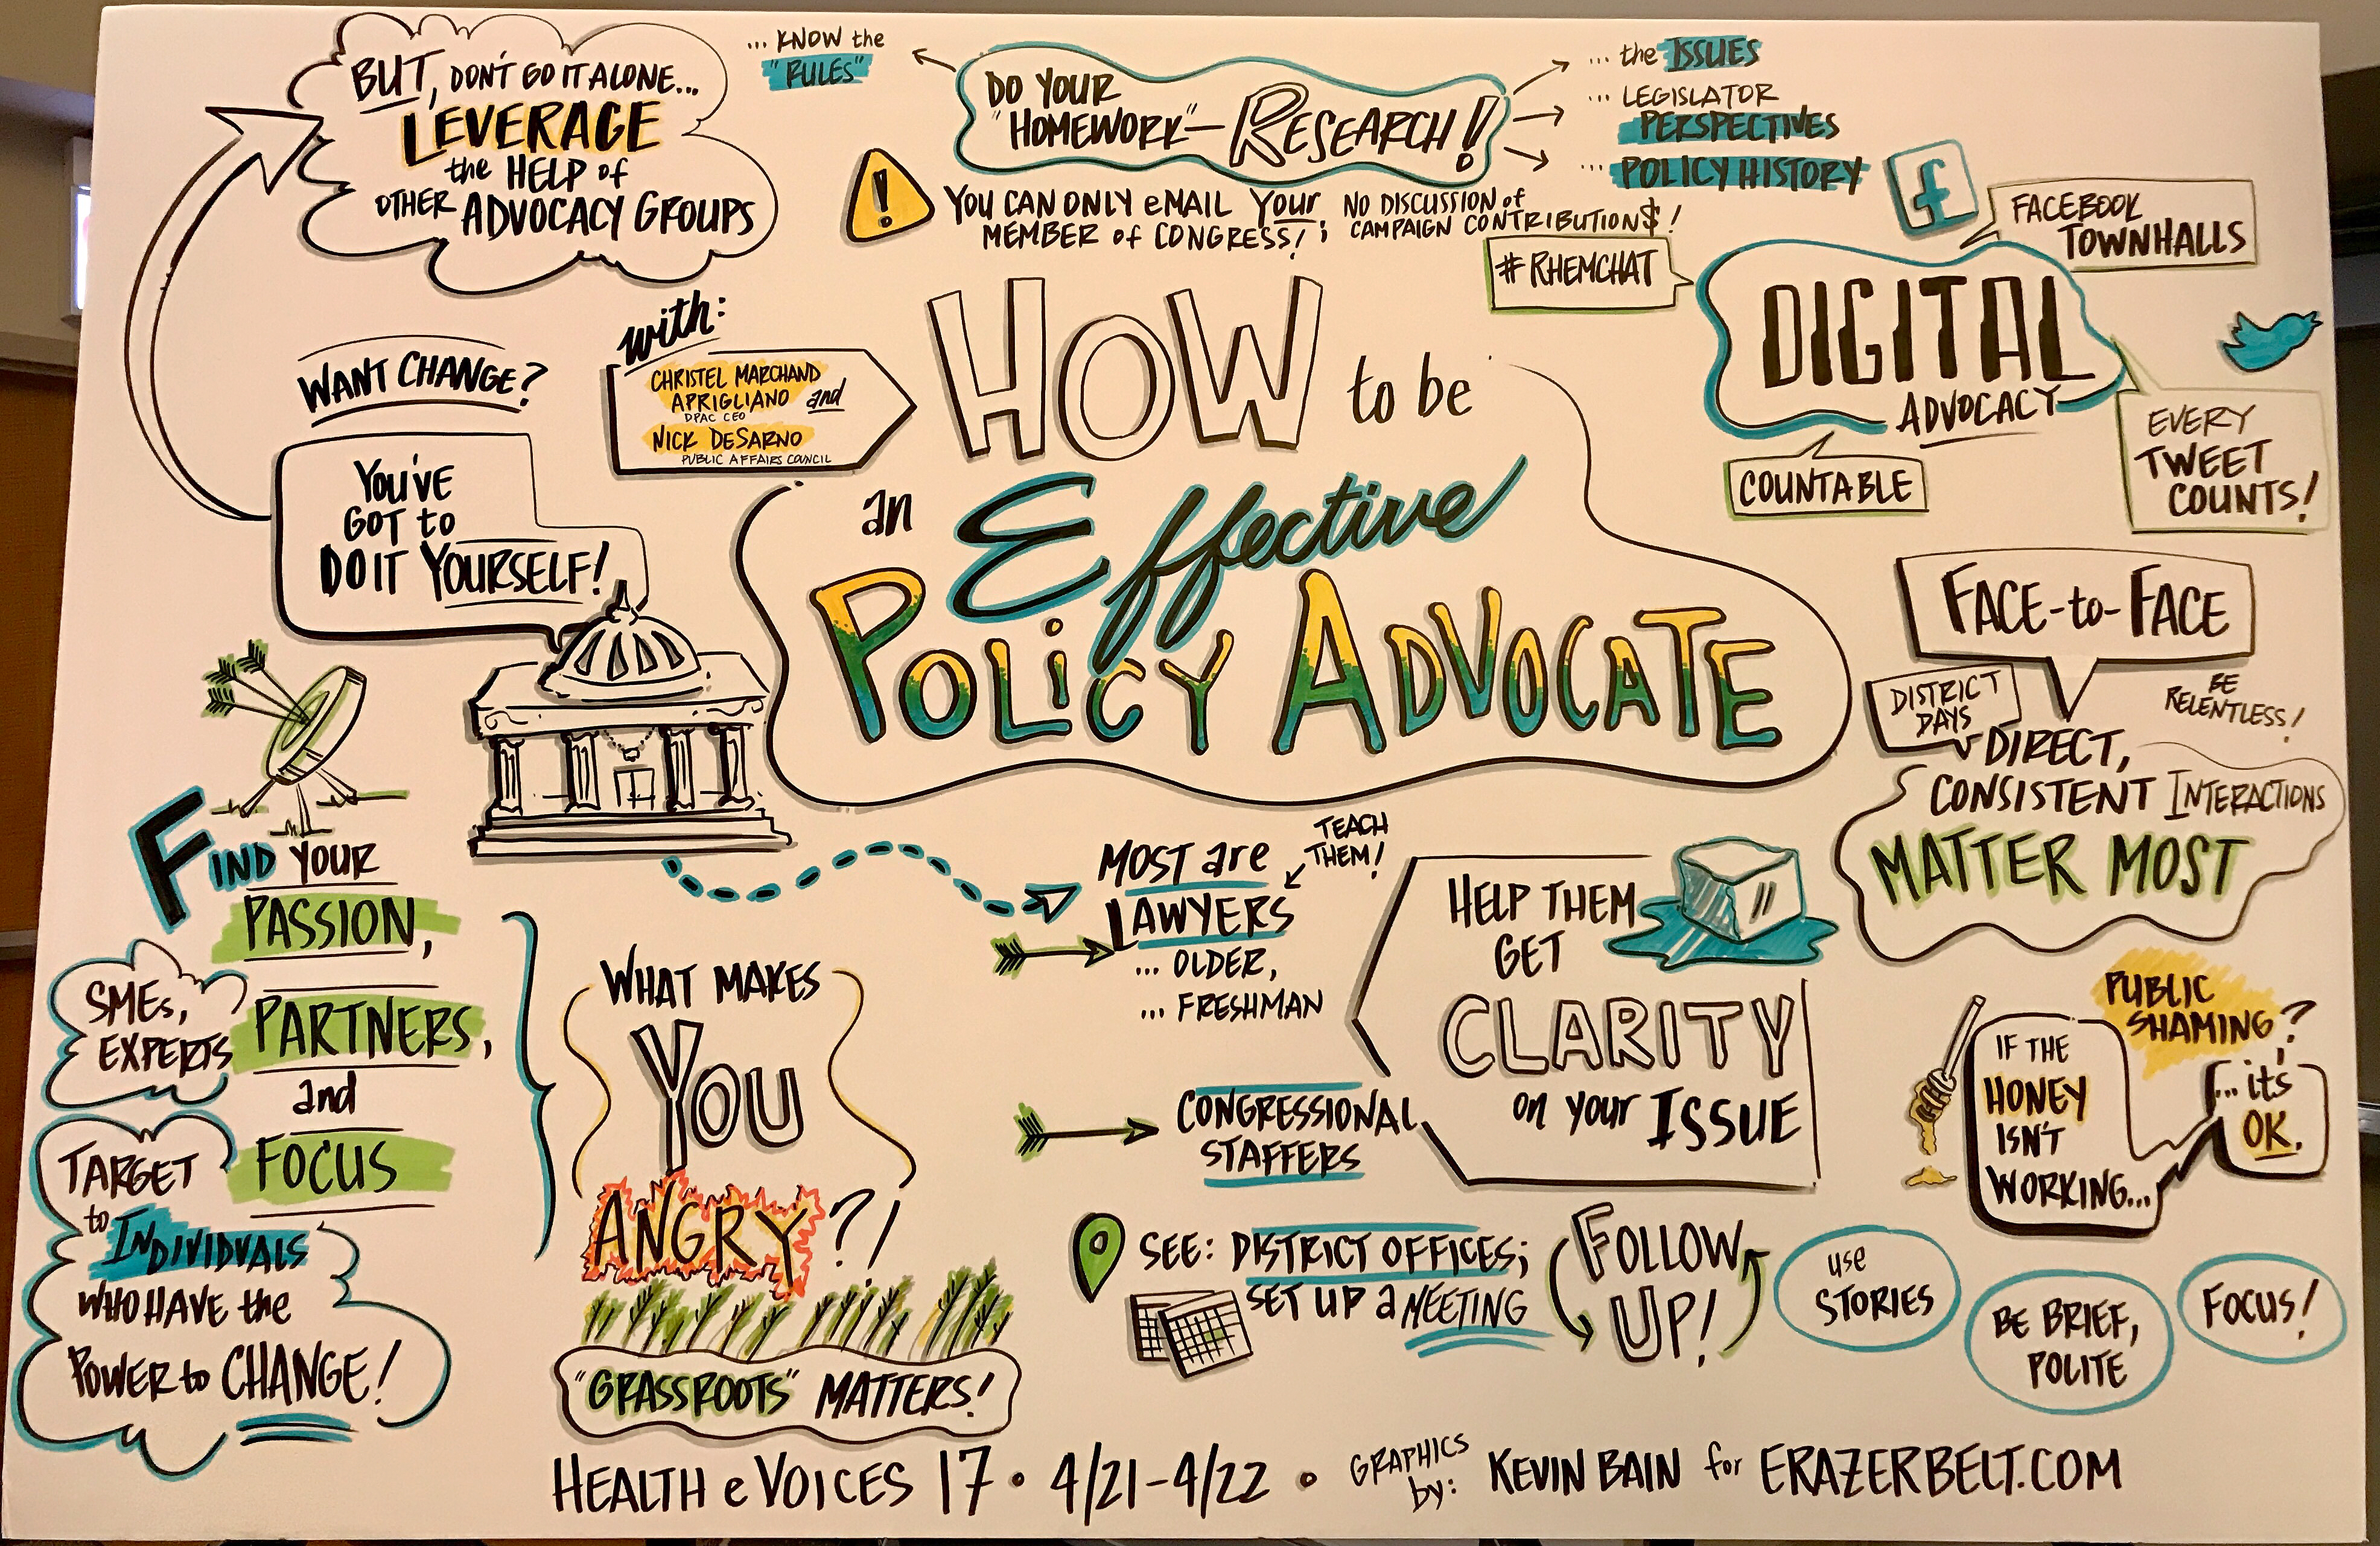 BUT, DON'T GO IT ALONE...
LEVERAGE
the HELP of
OTHER ADVOCACY GROUPS
... KNOW the
"RULES"
DO YOUR
"HOMEWORK" — RESEARCH!
... the ISSUES
... LEGISLATOR
PERSPECTIVES
... POLICY HISTORY
!
YOU CAN ONLY eMAIL YOUR
MEMBER of CONGRESS! ;
NO DISCUSSION of
CAMPAIGN CONTRIBUTION$!
f
FACEBOOK
TOWNHALLS
#RHEMCHAT
DIGITAL
ADVOCACY
COUNTABLE
EVERY
TWEET
COUNTS!
WANT CHANGE?
YOU'VE
GOT to
DO IT YOURSELF!
with:
CHRISTEL MARCHAND
APRIGLIANO and
DPAC CEO
NICK DeSARNO
PUBLIC AFFAIRS COUNCIL
HOW to be
an Effective
POLiCY ADVOCATE
FACE-to-FACE
DISTRICT
DAYS
BE
RELENTLESS!
DIRECT,
CONSISTENT INTERACTIONS
MATTER MOST
FIND YOUR
PASSION,
SMEs,
EXPERTS
PARTNERS,
and
FOCUS
TARGET
to INDIVIDUALS
WHO HAVE the
POWER to CHANGE!
WHAT MAKES
YOU
ANGRY?!
"GRASSROOTS" MATTERS!
MOST are
LAWYERS
... OLDER,
... FRESHMAN
TEACH
THEM!
HELP THEM
GET
CLARITY
on your ISSUE
CONGRESSIONAL
STAFFERS
PUBLIC
SHAMING?
IF THE
HONEY
ISN'T
WORKING...
... it's
OK.
SEE: DISTRICT OFFICES;
SET UP a MEETING
FOLLOW
UP!
use
STORIES
BE BRIEF,
POLITE
FOCUS!
HEALTH e VOICES 17 • 4/21-4/22 •
GRAPHICS
by:
KEVIN BAIN for ERAZERBELT.COM